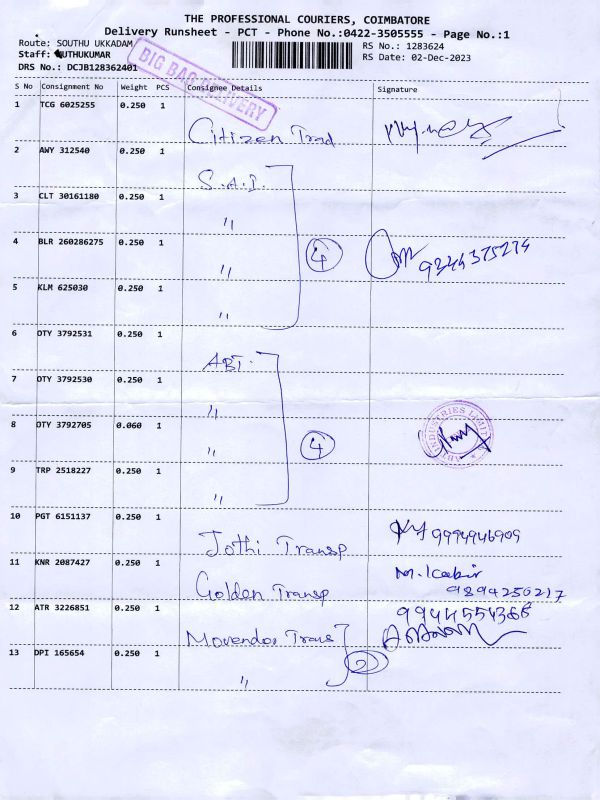 THE PROFESSIONAL COURIERS, COIMBATORE
Delivery Runsheet - PCT - Phone No.:0422-3505555 - Page No.:1
Route: SOUTHU UKKADAM
RS No.: 1283624
Staff: MUTHUKUMAR
RS Date: 02-Dec-2023
DRS No.: DCJB128362401
BIG BAG DELIVERY
S No Consignment No Weight PCS Consignee Details Signature
1 TCG 6025255 0.250 1
Citizen Trad
2 AWY 312540 0.250 1
S.A.I.
3 CLT 30161180 0.250 1
"
4 BLR 260286275 0.250 1
" 4 9344375274
5 KLM 625030 0.250 1
"
6 OTY 3792531 0.250 1
ABT.
7 OTY 3792530 0.250 1
"
8 OTY 3792705 0.060 1
" 4
ABT INDUSTRIES LIMITED
9 TRP 2518227 0.250 1
"
10 PGT 6151137 0.250 1
Jothi Transp 9994946909
11 KNR 2087427 0.250 1
Golden Transp M. Kabir
9894250217
12 ATR 3226851 0.250 1
9944554366
Movendos Trans
13 DPI 165654 0.250 1
2
"